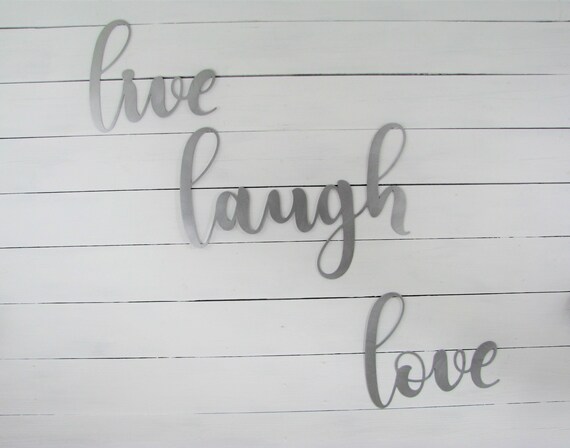 live
laugh
love